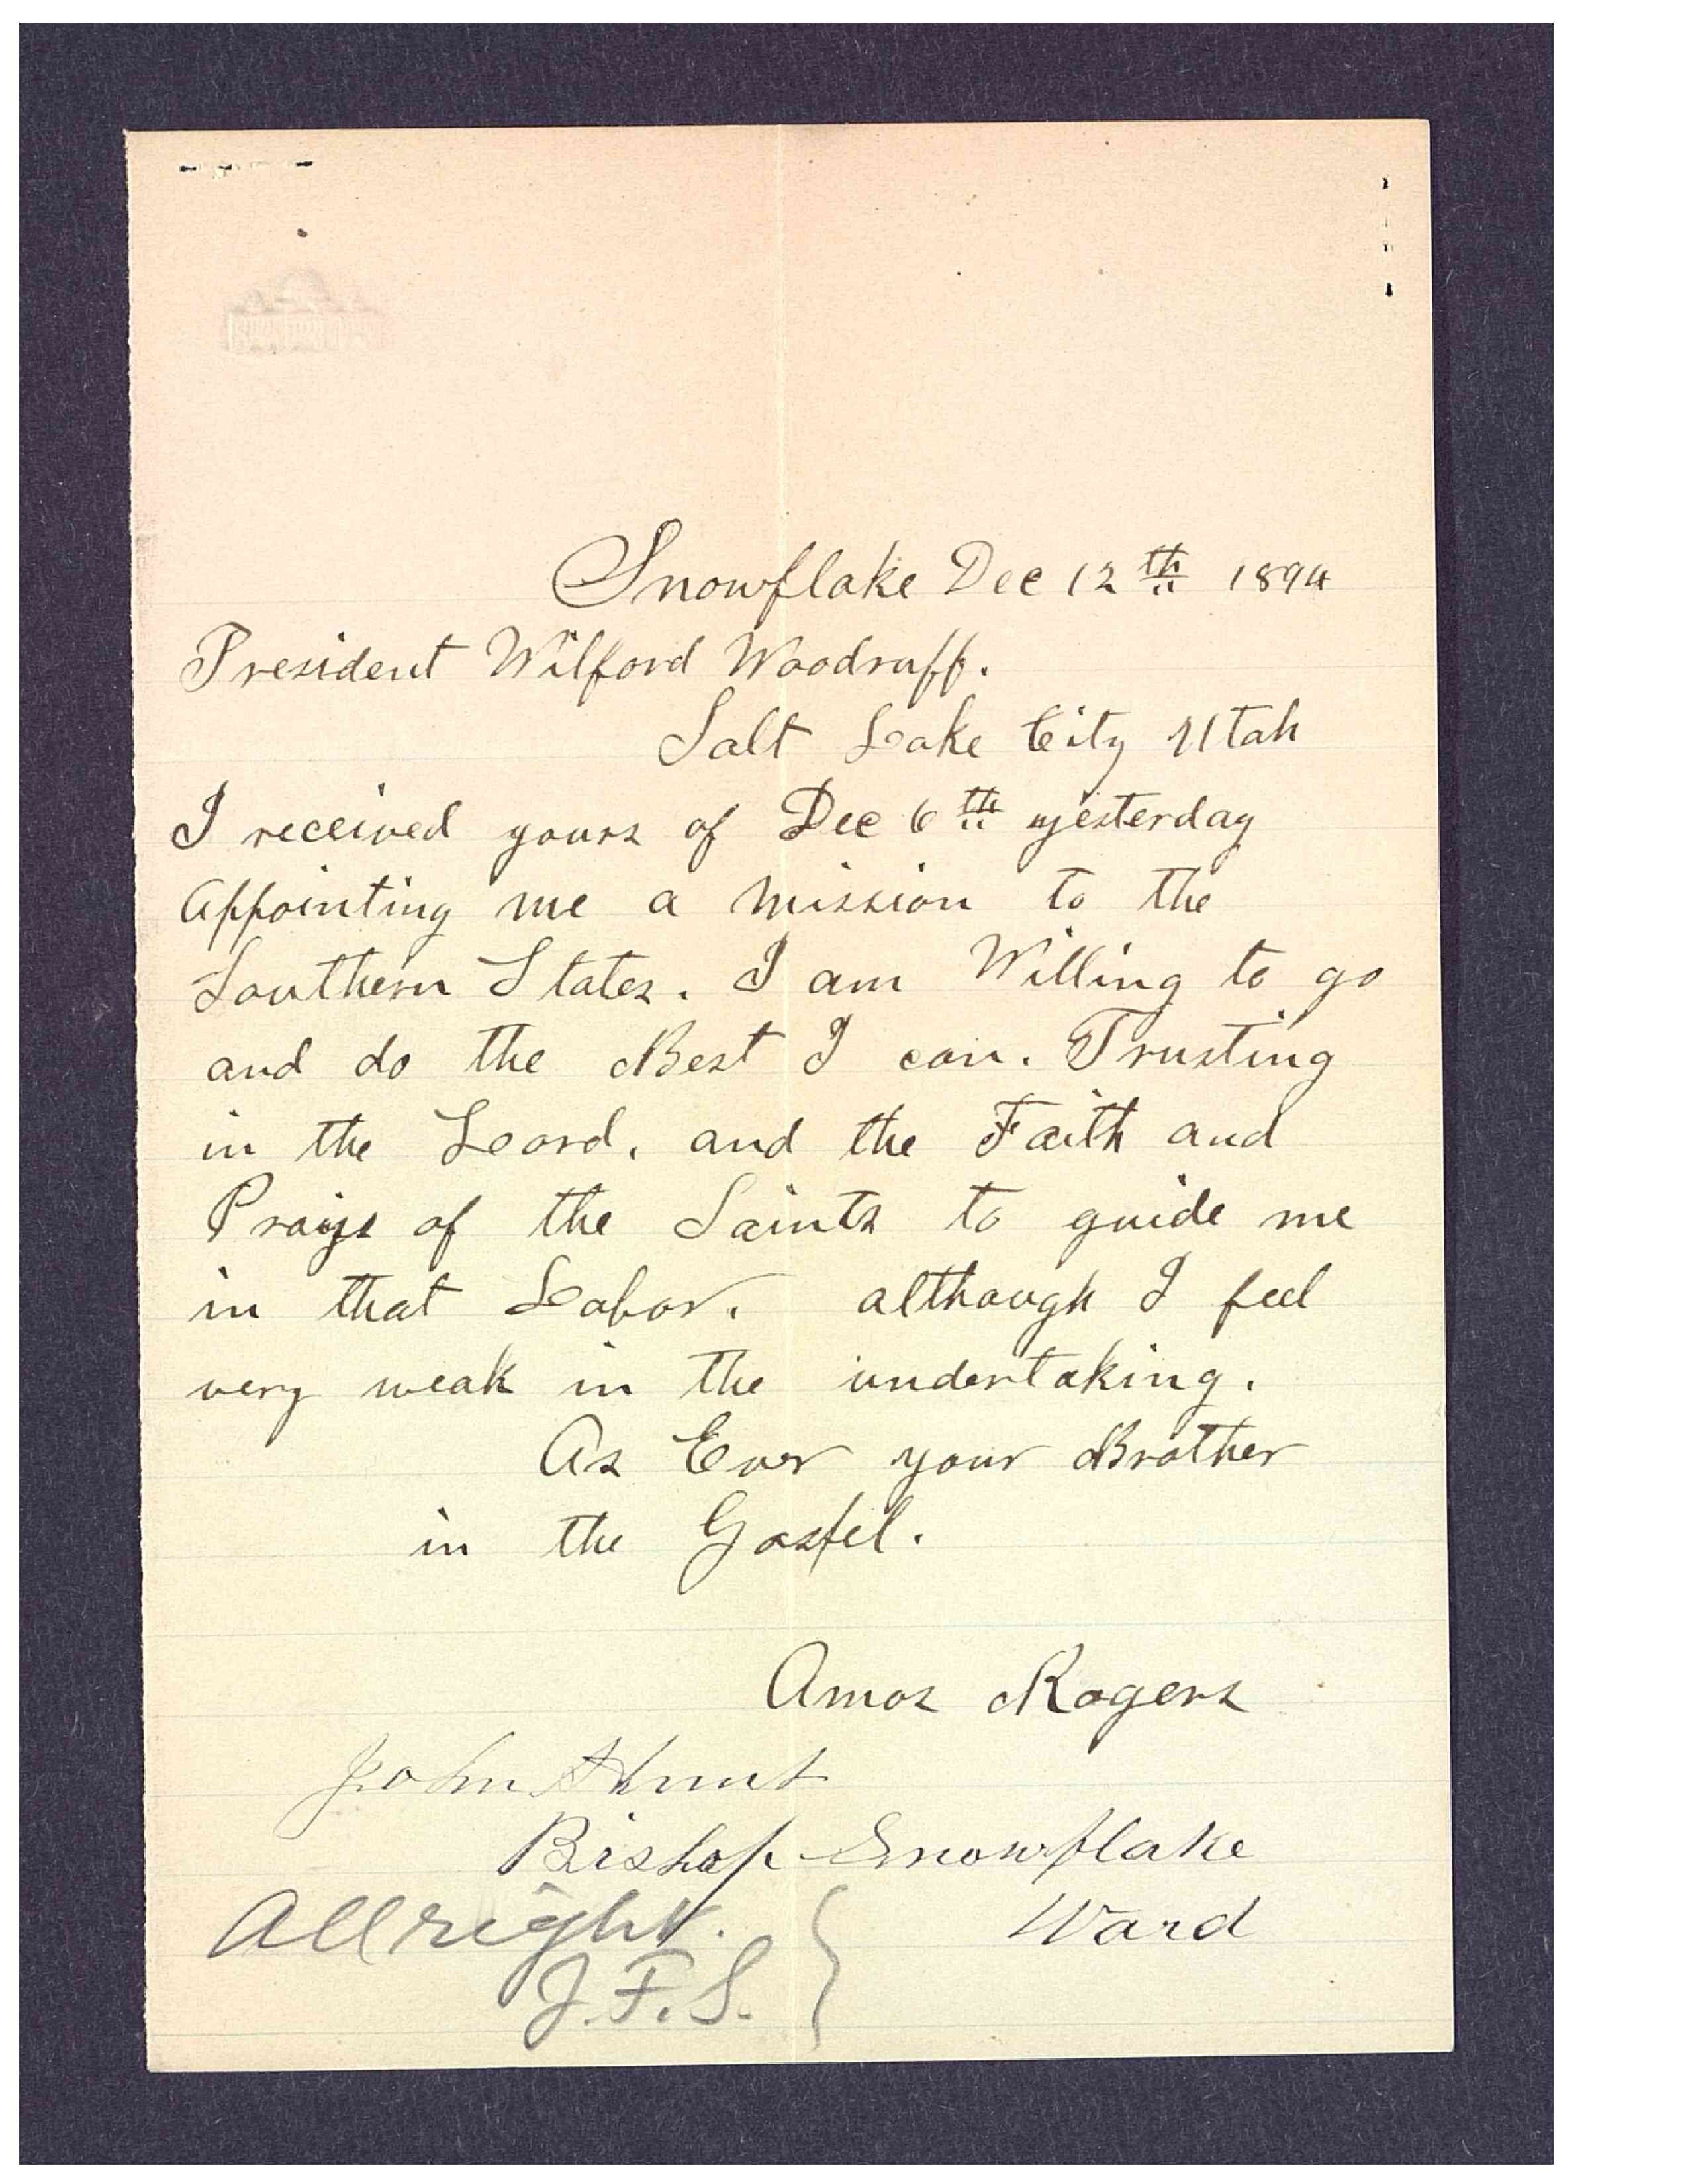 Snowflake Dec 12th 1894
President Wilford Woodruff.
Salt Lake City Utah
I received yours of Dec 6th yesterday
Appointing me a Mission to the
Southern States. I am Willing to go
and do the Best I can. Trusting
in the Lord, and the Faith and
of the Saints to guide me
in that Labor. although I feel
very weak in the undertaking.
As Ever your Brother
in the Gospel.
Amos Rogers
John Hunt
Bishop Snowflake
Ward
All right.
J. F. S.